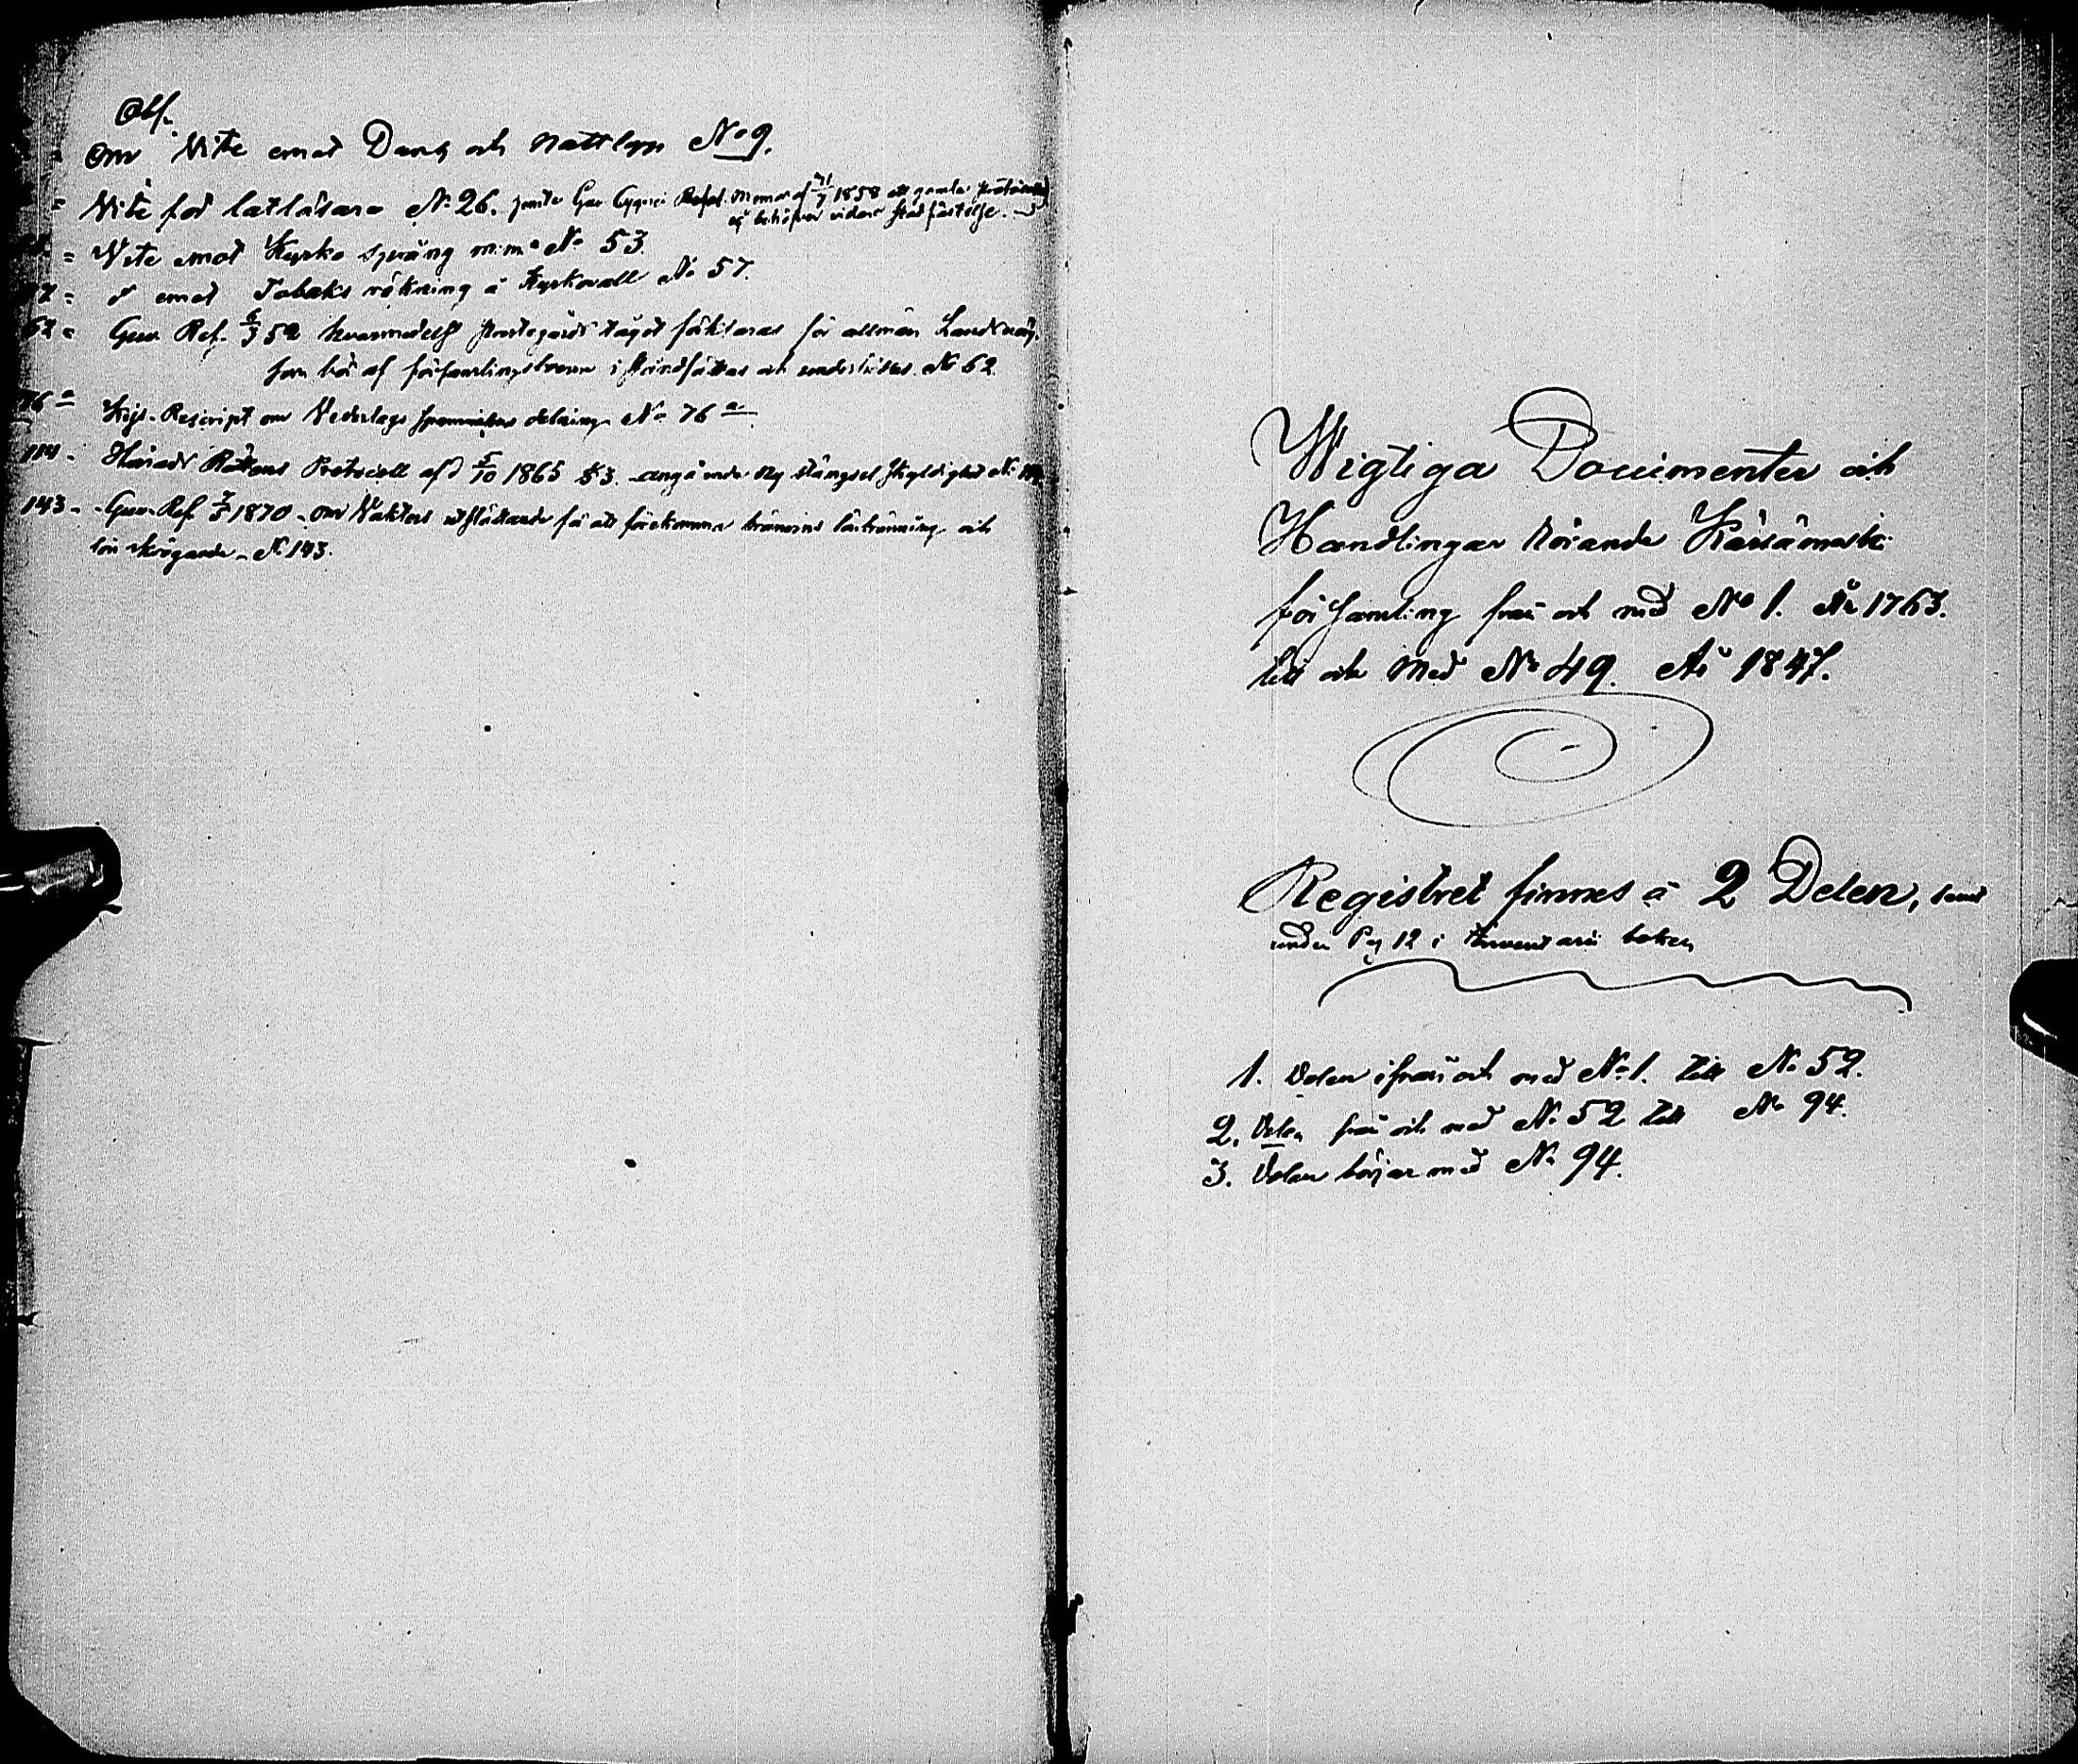 Obs.
Om Vite emot Dans och nattlopp No 9.
= Vite för latläsare No 26. jemte Guv. Cygnei Resol. Memor af 21/7 1858 att gamla
ej behöfver vidare stadfästelse.
= Vite emot Kyrko spräng m:m: No 53.
57 = d:o emot Tobaks rökning å Kyrkovall No 57.
62 = Guv. Res. 6/3 52 hvarmedelst prostegårds täget förklaras för allmän Landsväg,
som bör af församlingsboerne i ståndsättas och underhållas. No 62.
76 a Kejs. Rescript om Nederlags spanmålens delning No 76 a
114 - Härads Rättens Protocoll af d 5/10 1865 § 3. angående Ny stängsel skyldighet No 114
143 - Guv. Res. 7/3 1870 - om Vakters utställande för att förekomma brännvins lönbränning och
lön krögande - No 143.
Wigtiga Documenter och
Handlingar rörande Kärsämäki
församling från och med No 1. År 1763.
till och Med No 49. År 1847.
Registret finnes i 2 Delen, samt
under Pag 12 i Inventarii boken
1. Delen ifrån och med No 1. till No 52.
2. Delen från och med No 52 till No 94.
3. Delen börjar med No 94.